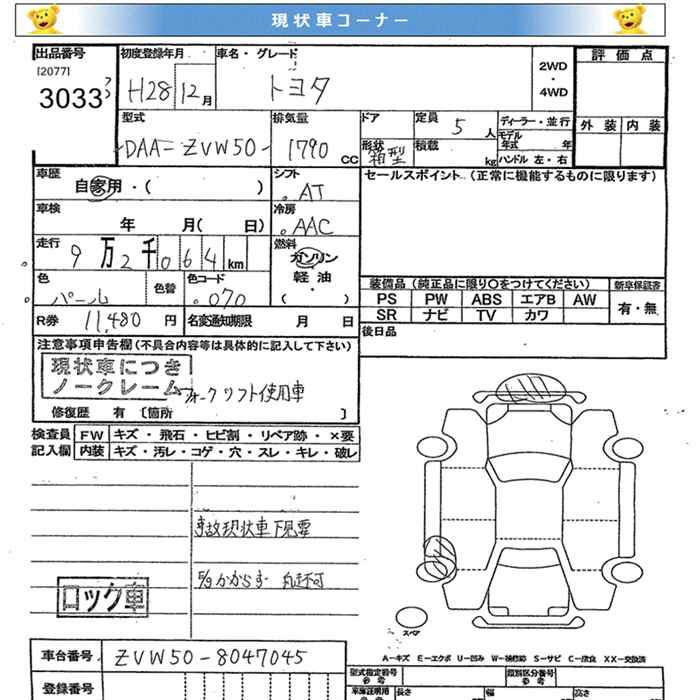 現状車コーナー
出品番号 初度登録年月 車名・グレード 2WD・4WD 評価点
[2077]
30333 H28 12月 トヨタ 外装 内装
型式 排気量 ドア 定員 5人 ディーラー・並行
DAA-ZVW50- 1790CC 形状 箱型 積載 kg モデル年式 年
ハンドル 左・右
車歴 シフト セールスポイント(正常に機能するものに限ります)
自家用・( ) AT
車検 冷房
年 月( 日) AAC
走行 燃料
9万2千064km ガソリン
軽油
・( )
色 色替 色コード 装備品(純正品に限り○をつけてください) 新車保証書
パール 070 PS PW ABS エアB AW 有・無
R券 11,480円 名変通知期限 月 日 SR ナビ TV カワ
後日品
注意事項申告欄(不具合内容等は具体的に記入して下さい)
現状車につき
ノークレーム フォークリフト使用車
修復歴 有 [箇所 ]
検査員 FW キズ・飛石・ヒビ割・リペア跡・×要
記入欄 内装 キズ・汚レ・コゲ・穴・スレ・キレ・破レ
事故現状車下見要
ロック車
スペア
A-キズ E-エクボ U-凹み W-補修跡 S-サビ C-腐食 XX-交換済
車台番号 ZVW50-8047045 型式指定番号 参考 類別区分番号 参考
登録番号 長さ 幅 高さ